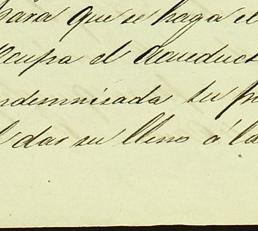 para que se haga el
ocupa el daeduct
ndemnisada su p
l dar su lleno á la